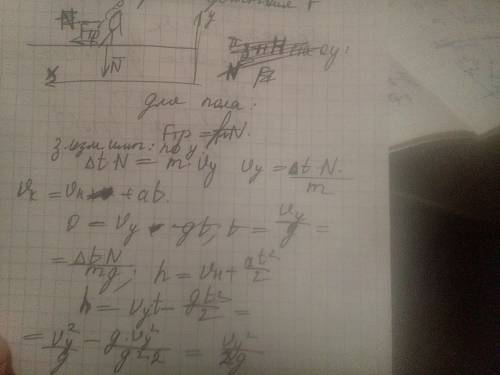 y
Fтр
N
x
N
оу:
для пола:
Fтр = μN.
з. изм. имп: по y
Δt·N = m·Vy   Vy = Δt·N / m
Vк = Vн + at.
0 = Vy - gt; t = Vy / g =
= ΔtN / mg; h = Vн + at² / 2
h = Vyt - gt² / 2 =
= Vy² / g - g·Vy² / g²·2 = Vy² / 2g